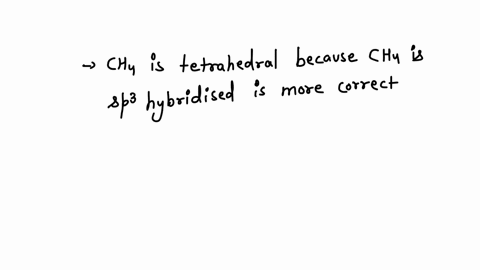 → CH4 is tetrahedral because CH4 is
sp³ hybridised is more correct